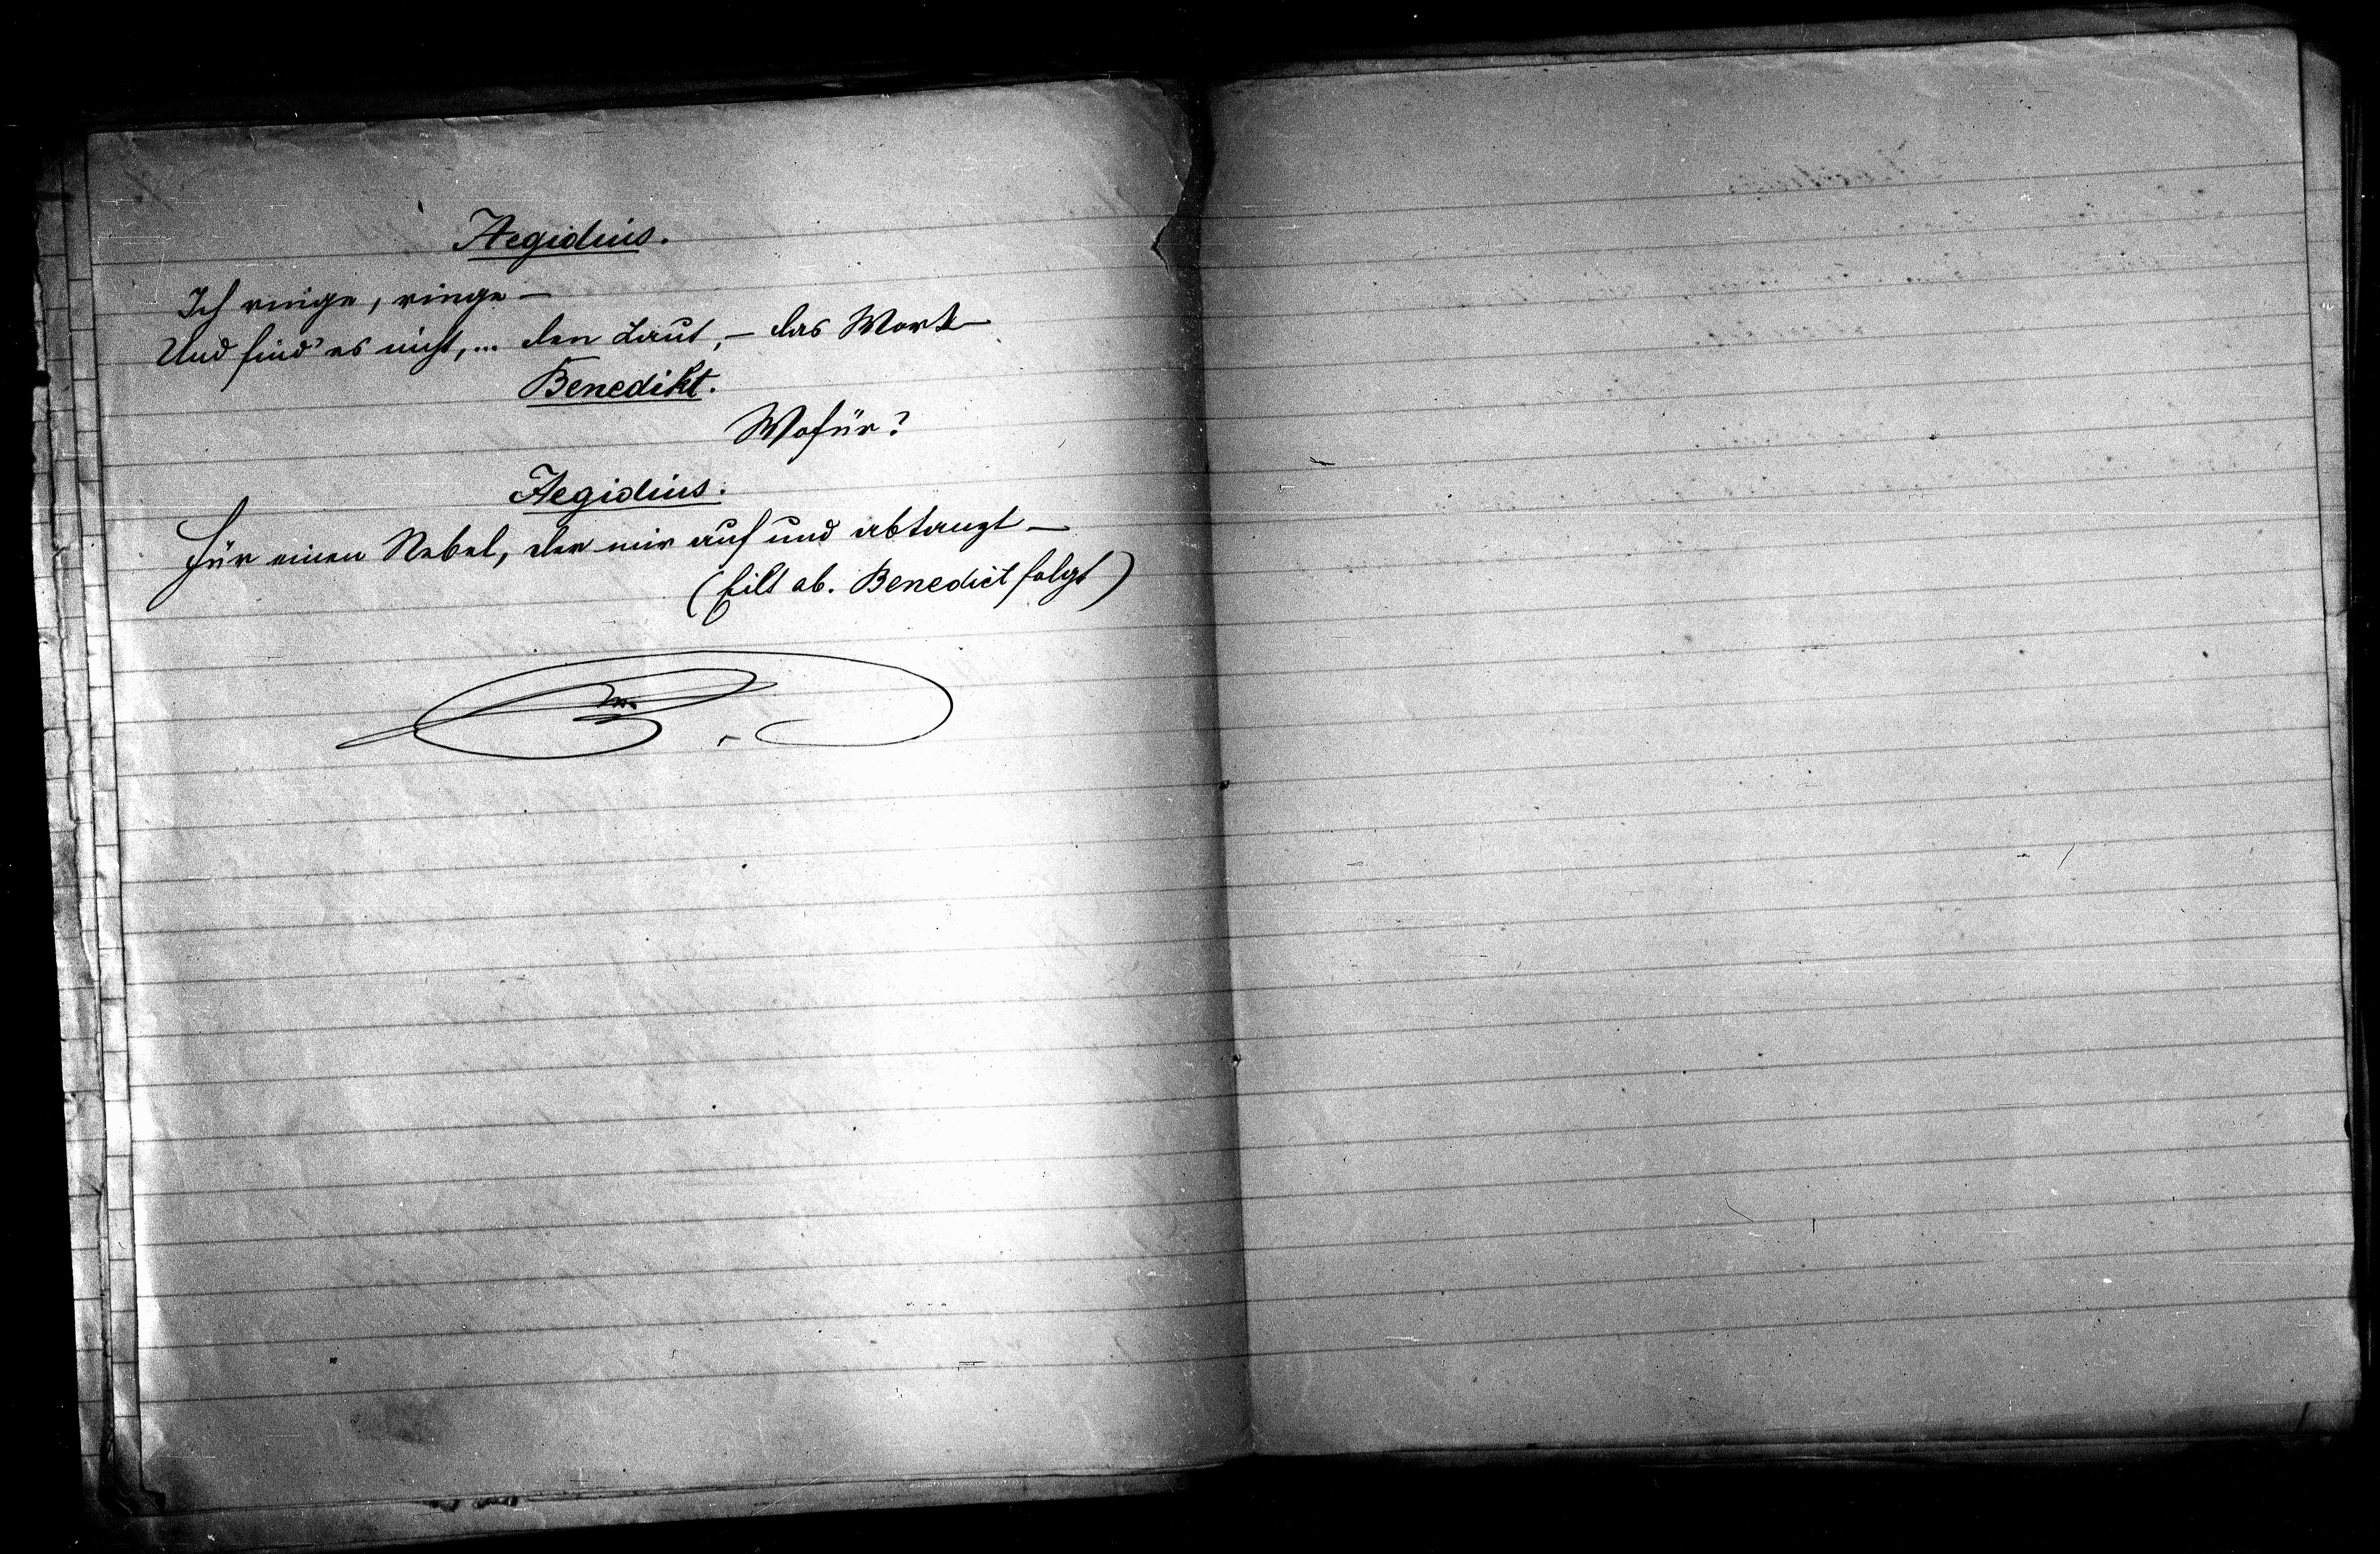 Aegidius.
Ich ringe, ringe —
Und find' es nicht, ... den Laut, — das Wort —
Benedikt.
Wofür?
Aegidius.
Für einen Nebel, der mir auf und abtanzt —
(Eilt ab. Benedict folgt)